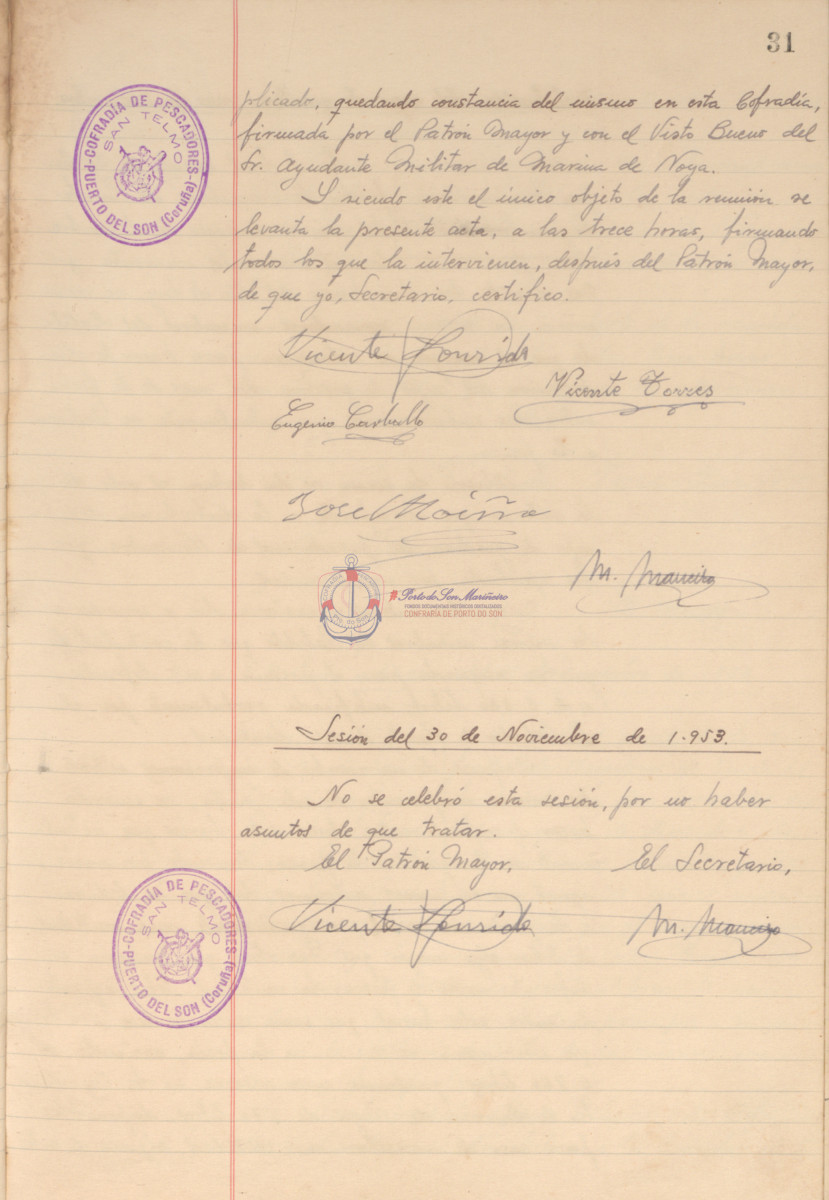 31
plicado, quedando constancia del mismo en esta Cofradía,
firmada por el Patrón Mayor y con el Visto Bueno del
Sr. Ayudante Militar de Marina de Noya.
Y siendo este el único objeto de la reunión se
levanta la presente acta, a las trece horas, firmando
todos los que la intervienen, después del Patrón Mayor,
de que yo, Secretario, certifico.
COFRADÍA DE PESCADORES
SAN TELMO
PUERTO DEL SON (Coruña)
Vicente
Vicente Torres
Eugenio Carballo
Jose
M. Maneiro
#PortodoSonMariñeiro
FONDOS DOCUMENTAIS HISTÓRICOS DIXITALIZADOS
CONFRARÍA DE PORTO DO SON
Sesión del 30 de Noviembre de 1.953.
No se celebró esta sesión, por no haber
asuntos de que tratar.
El Patrón Mayor, El Secretario,
Vicente M. Maneiro
COFRADÍA DE PESCADORES
SAN TELMO
PUERTO DEL SON (Coruña)